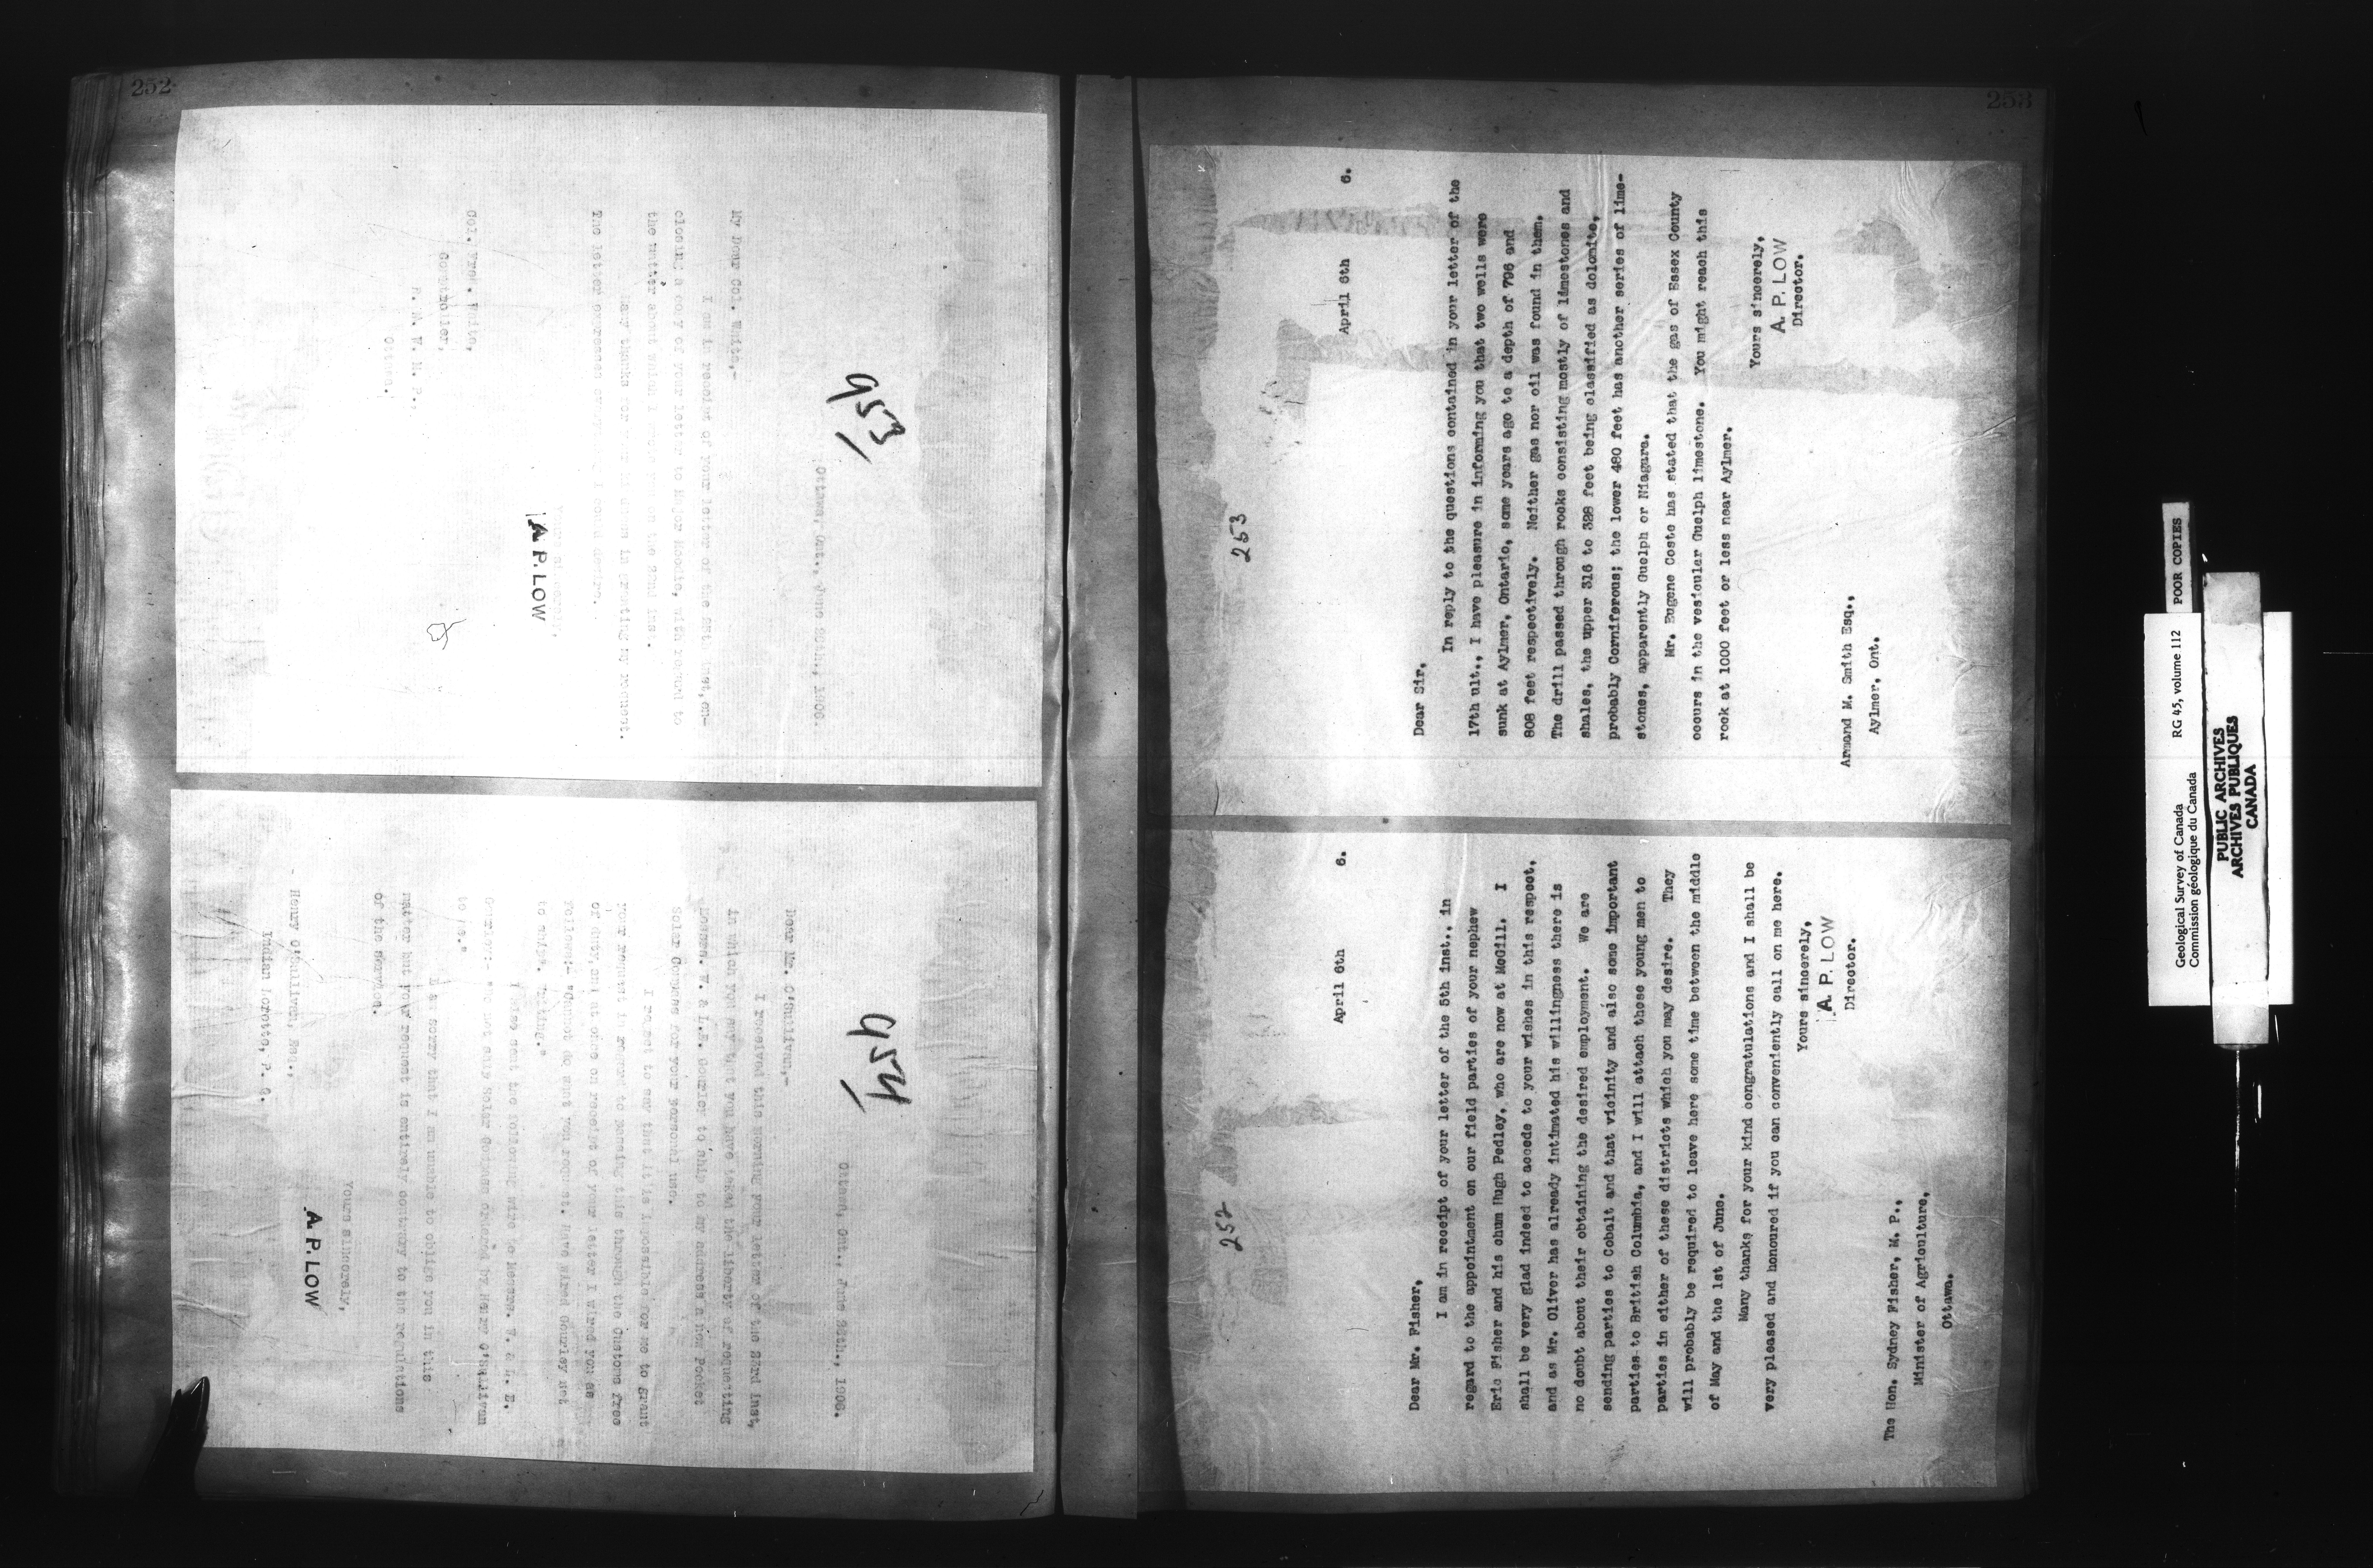 252
My Dear Col. White,-
I am in receipt of your letter of the
closing a copy of your letter to Major Moodie, with regard to
the matter about which I wrote you on the 2nd ins.
The letter expresses
Col. Fred. White,
Controller,
R. N. W. M. P.,
Ottawa.
A. P. LOW
Ottawa, Ont., June 25th., 1906.
Dear Mr. O'Sullivan,-
I received this morning your letter of the 23rd inst,
in which you say that you have taken the liberty of requesting
Messrs. W. & L.E. Gourley to ship to my address a new Pocket
Solar Compass for your personal use.
I regret to say that it is impossible for me to grant
your request in regard to passing this through the Customs free
of duty, and at once on receipt of your letter I wired you as
follows:- "Cannot do what you request. Have wired Gourley not
to ship. Writing."
I also sent the following wire to Messrs. W. & L. E.
Gurley:- "Do not ship Solar Compass ordered by Henry O'Sullivan
to me."
I am sorry that I am unable to oblige you in this
matter but your request is entirely contrary to the regulations
of the service.
Yours sincerely,
A. P. LOW
Henry O'Sullivan, Esq.,
Indian Lorette, P. Q.
Ottawa, Ont., June 25th., 1906.
253
253
April 6th 6.
Dear Sir,
In reply to the questions contained in your letter of the
17th ult., I have pleasure in informing you that two wells were
sunk at Aylmer, Ontario, some years ago to a depth of 796 and
808 feet respectively. Neither gas nor oil was found in them.
The drill passed through rocks consisting mostly of limestones and
shales, the upper 316 to 328 feet being classified as dolomite,
probably Corniferous; the lower 480 feet has another series of lime-
stones, apparently Guelph or Niagara.
Mr. Eugene Coste has stated that the gas of Essex County
occurs in the vesicular Guelph limestone. You might reach this
rock at 1000 feet or less near Aylmer.
Yours sincerely,
A. P. LOW
Director.
Armand M. Smith Esq.,
Aylmer, Ont.
252
April 6th 6.
Dear Mr. Fisher,
I am in receipt of your letter of the 5th inst., in
regard to the appointment on our field parties of your nephew
Eric Fisher and his chum Hugh Pedley, who are now at McGill. I
shall be very glad indeed to accede to your wishes in this respect,
and as Mr. Oliver has already intimated his willingness there is
no doubt about their obtaining the desired employment. We are
sending parties to Cobalt and that vicinity and also some important
parties to British Columbia, and I will attach these young men to
parties in either of these districts which you may desire. They
will probably be required to leave here some time between the middle
of May and the 1st of June.
Many thanks for your kind congratulations and I shall be
very pleased and honoured if you can conveniently call on me here.
Yours sincerely,
A. P. LOW
Director.
The Hon. Sydney Fisher, M. P.,
Minister of Agriculture,
Ottawa.
Geological Survey of Canada RG 45, volume 112 POOR COPIES
Commission géologique du Canada
PUBLIC ARCHIVES
ARCHIVES PUBLIQUES
CANADA